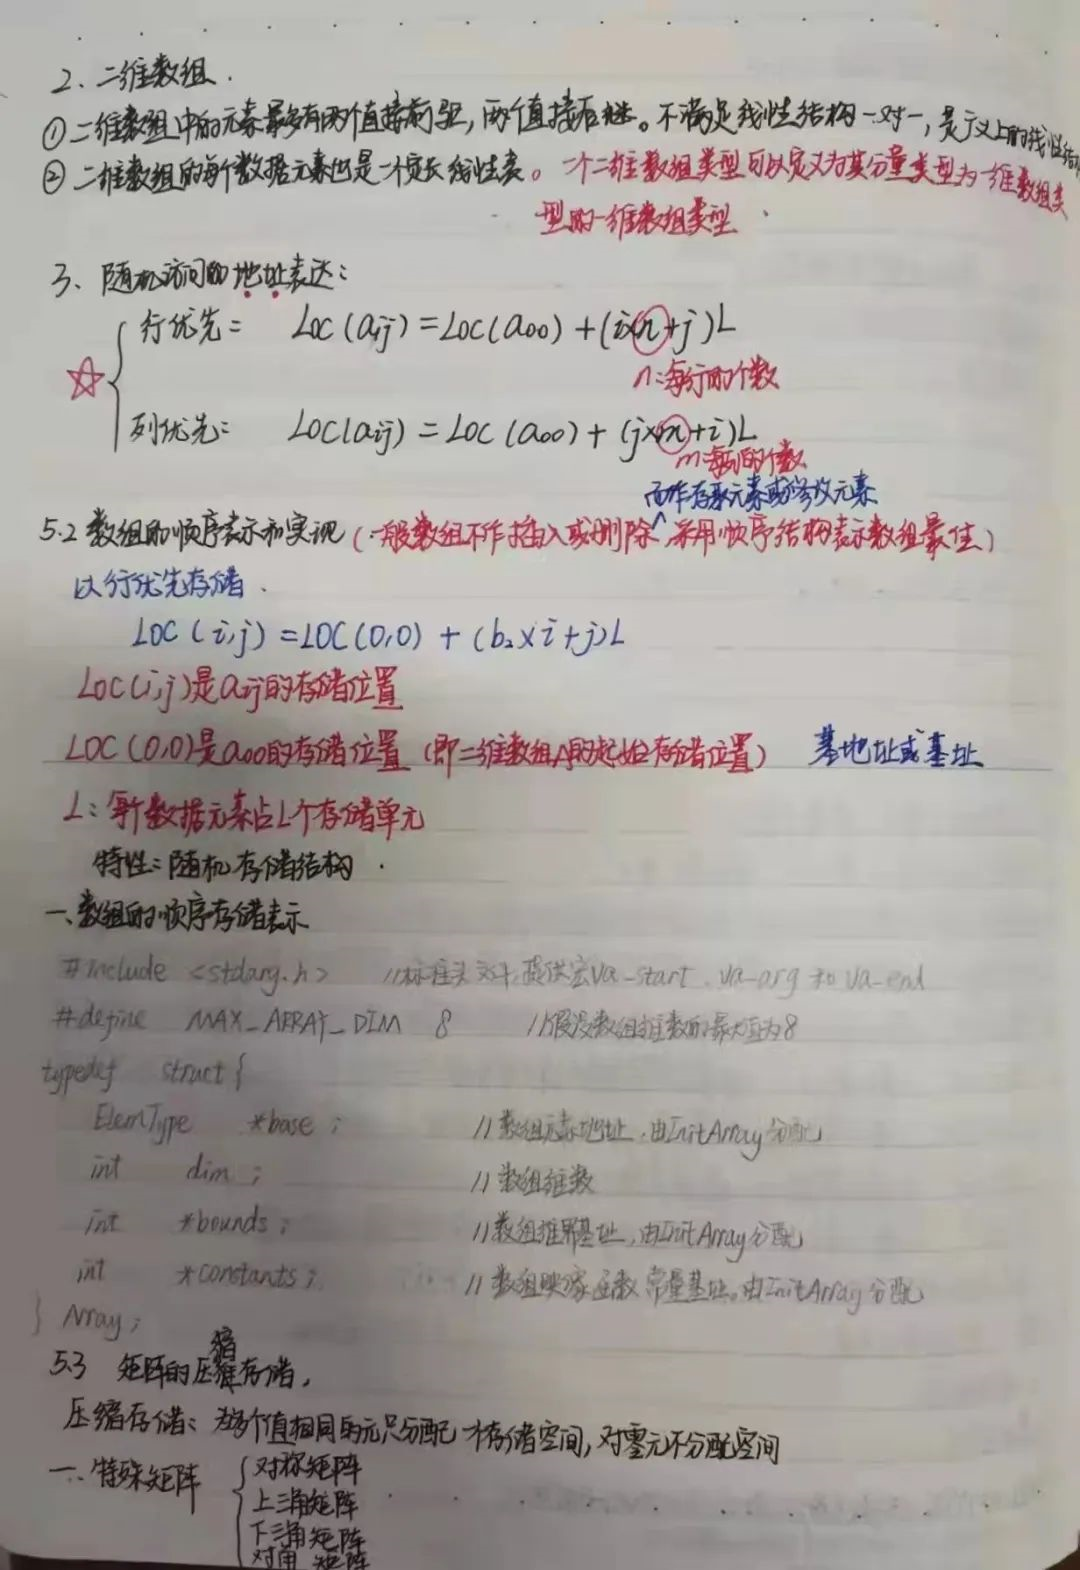 2、二维数组.
①二维数组中的元素最多有两个直接前驱,两个直接后继。不满足线性结构一对一,是广义上的线性结
②二维数组的每个数据元素也是一个定长线性表。一个二维数组类型可以定义为其分量类型为一维数组类
型的一维数组类型.
3、随机访问的地址表达:
行优先: LOC(aij)=LOC(a00)+(i×n+j)L
n:每行的个数
列优先: LOC(aij)=LOC(a00)+(j×m+i)L
m:每列的个数
而作存取元素或修改元素
5.2 数组的顺序表示和实现(一般数组不作插入或删除^,采用顺序结构表示数组最佳)
以行优先存储.
LOC(i,j)=LOC(0,0)+(b₂×i+j)L
LOC(i,j)是aij的存储位置
LOC(0,0)是a00的存储位置(即二维数组A的起始存储位置) 基地址或基址
L:每个数据元素占L个存储单元
特性:随机存储结构.
一、数组的顺序存储表示
#include <stdarg.h> //标准头文件,提供宏va-start、va-arg和va-end
#define MAX_ARRAY_DIM 8 //假设数组维数的最大值为8
typedef struct{
ElemType *base; //数组元素地址,由InitArray分配
int dim; //数组维数
int *bounds; //数组维界基址,由InitArray分配
int *constants; //数组映像函数常量基址。由InitArray分配
} Array;
5.3 矩阵的压缩存储,
压缩存储:为多个值相同的元只分配一个存储空间,对零元不分配空间
一、特殊矩阵 {对称矩阵
上三角矩阵
下三角矩阵
对角矩阵